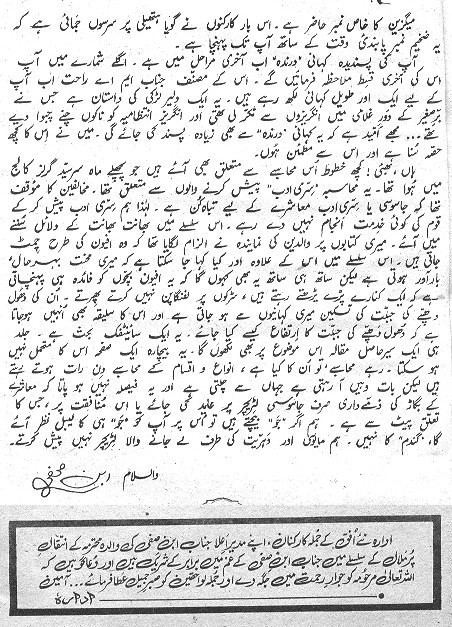 میگزین کا خاص نمبر حاضر ہے۔ اس بار کارکنوں نے گویا ہتھیلی پر سرسوں جمائی ہے کہ
یہ ضخیم نمبر پابندیٔ وقت کے ساتھ آپ تک پہنچا ہے۔
آپ کی پسندیدہ کہانی "درندہ" اب آخری مراحل میں ہے۔ اگلے شمارے میں آپ
اس کی آخری قسط ملاحظہ فرمائیں گے۔ اس کے مصنف جناب ایم اے راحت اب آپ
کے لیے ایک اور طویل کہانی لکھ رہے ہیں۔ یہ ایک دلیر لڑکی کی داستان ہے جس نے
برصغیر کے دورِ غلامی میں انگریزوں سے ٹکر لی تھی اور انگریز انتظامیہ کو ناکوں چنے چبوا دیے
تھے... مجھے اُمید ہے کہ یہ کہانی "درندہ" سے بھی زیادہ پسند کی جائے گی۔ میں نے اس کا کچھ
حصّہ سُنا ہے اور اس سے مطمئن ہوں۔
ہاں، بھئی! کچھ خطوط اُس محاسبے سے متعلق بھی آئے ہیں جو پچھلے ماہ سرسیّد گرلز کالج
میں ہُوا تھا۔ یہ محاسبہ "سِرّی ادب" پیش کرنے والوں سے متعلق تھا۔ مخالفین کا مؤقف
تھا کہ جاسوسی یا سِرّی ادب معاشرے کے لیے تباہ کُن ہے۔ لہٰذا ہم سِرّی ادب پیش کر کے
قوم کی کوئی خدمت انجام نہیں دے رہے۔ اس سلسلے میں بھانت بھانت کے دلائل سُننے
میں آئے۔ میری کتابوں پر والدین کی نمایندہ نے الزام لگایا تھا کہ وہ افیون کی طرح چمٹ
جاتی ہیں۔ اس سلسلے میں اس کے علاوہ اور کیا کہا جا سکتا ہے کہ میری محنت بہرحال
بارآور ہوتی ہے لیکن ساتھ ہی ساتھ یہ بھی کہوں گا کہ یہ افیون بچّوں کو فائدہ ہی پہنچاتی
ہے کہ ایک کنارے پڑے پڑھتے رہتے ہیں، سڑکوں پر لفنگاپن نہیں کرتے پھرتے۔ اُن کی دھول
دھپّے کی جبلّت کی تسکین میری کہانیوں سے ہو جاتی ہے اور اس کا سلیقہ بھی اُنھیں ہوجاتا
ہے کہ دھول دھپّے کی جبلّت کا اِرتفاع کیسے کیا جائے۔ یہ ایک سائنٹفک بحث ہے۔ جلد
ہی ایک سیرحاصل مقالہ اس موضوع پر بھی لکھوں گا۔ یہ بیچارہ ایک صفحہ اس کا متحمل نہیں
ہو سکتا۔ رہے محاسبے تو اُن کا کیا ہے، انواع و اقسام کے محاسبے دن رات ہوتے رہتے
ہیں لیکن بات وہیں آ رہتی ہے جہاں سے چلتی ہے اور یہ فیصلہ نہیں ہو پاتا کہ معاشرے
کے بگاڑ کی ذمّے داری صرف جاسوسی لٹریچر پر عائد کی جائے یا اس منافقت پر، جس کا
تعلق پیٹ سے ہے۔ ہم اگر "جَو" بیچتے ہیں تو اُس پر آپ کو "جَو" ہی کا لیبل نظر آئے
گا، "گندم" کا نہیں۔ ہم مایوسی اور دہریّت کی طرف لے جانے والا لٹریچر نہیں پیش کرتے۔
والسّلام ابنِ صفی
ادارہ نئے اُفق کے جُملہ کارکنان، اپنے مدیرِ اعلا جناب ابنِ صفی کی والدہ محترمہ کے انتقالِ
پُرملال کے سلسلے میں جناب ابنِ صفی کے غم میں برابر کے شریک ہیں اور دُعا گو ہیں کہ
اللہ تعالیٰ مرحومہ کو جوارِ رحمت میں جگہ دے اور جُملہ لواحقین کو صبرِ جمیل عطا فرمائے... آمین
ادارہ